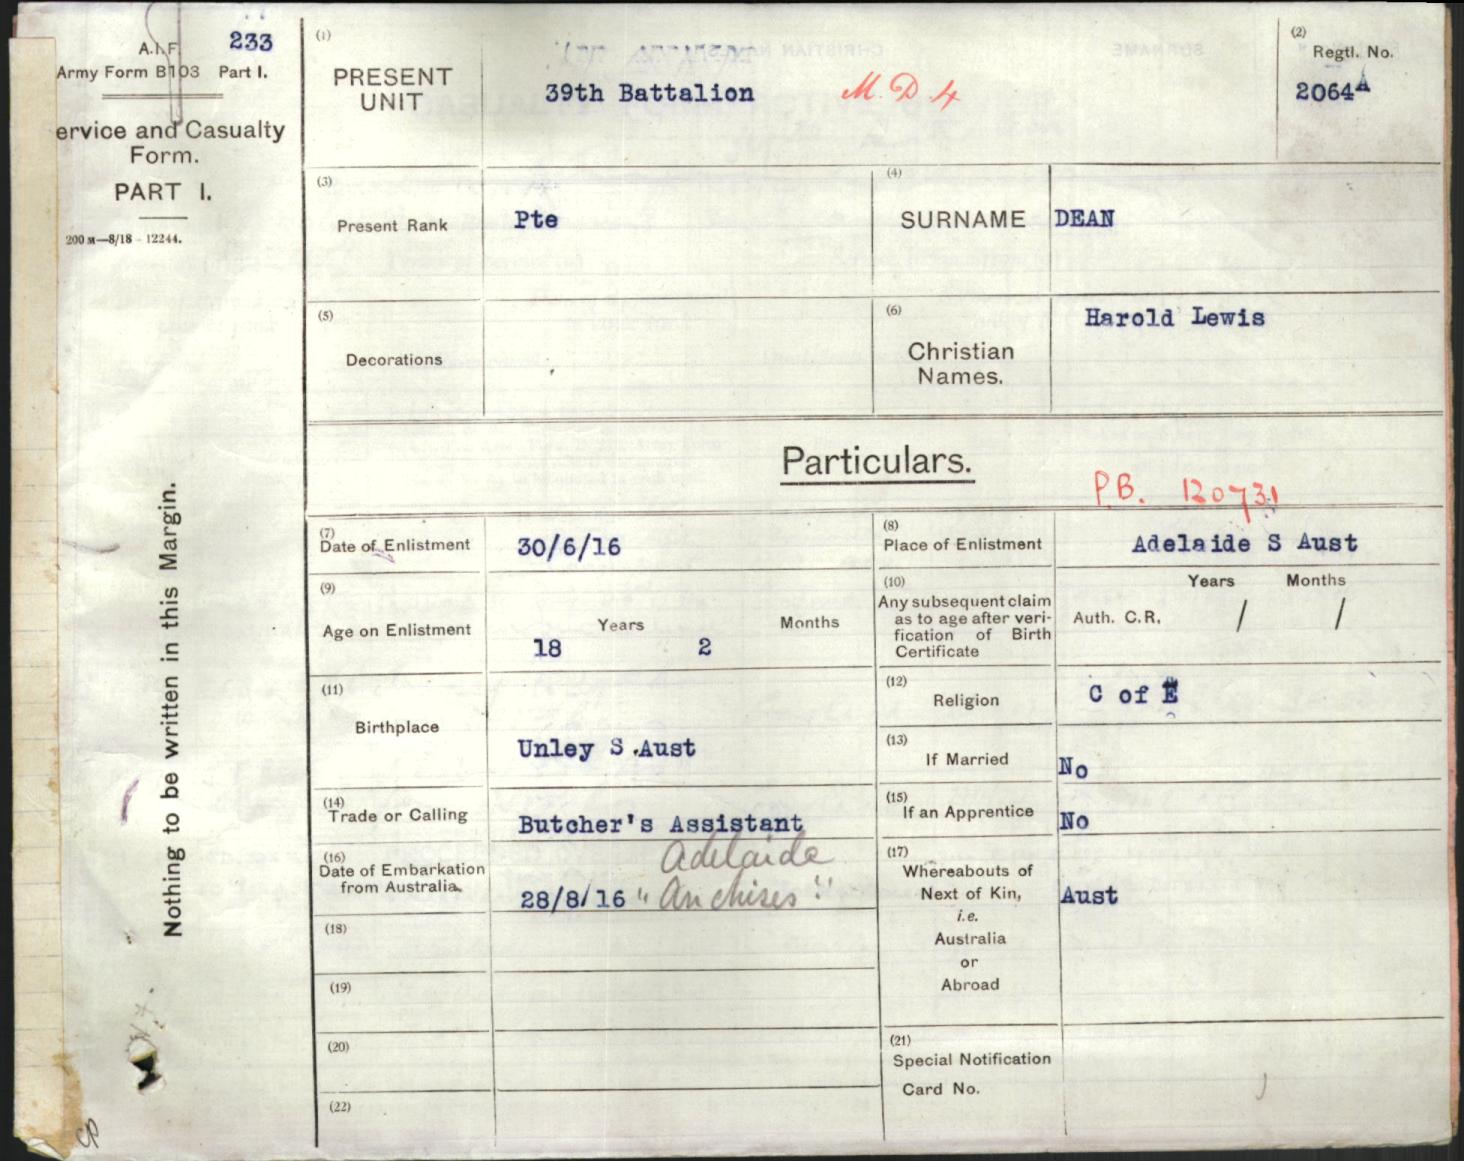 A.I.F. 233
Army Form B103 Part I.
ervice and Casualty
Form.
PART I.
200 M—8/18 - 12244.
Nothing to be written in this Margin.
(1)
PRESENT
UNIT
39th Battalion M.D 4
(2)
Regtl. No.
2064A
(3)
Present Rank
Pte
(4)
SURNAME
DEAN
(5)
Decorations
(6)
Christian
Names.
Harold Lewis
Particulars.
P.B. 120731
(7)
Date of Enlistment
30/6/16
(8)
Place of Enlistment
Adelaide S Aust
(9)
Age on Enlistment
Years Months
18 2
(10)
Any subsequent claim
as to age after veri-
fication of Birth
Certificate
Years Months
Auth. C.R. / /
(11)
Birthplace
Unley S .Aust
(12)
Religion
C of E
(13)
If Married
No
(14)
Trade or Calling
Butcher's Assistant
(15)
If an Apprentice
No
(16)
Date of Embarkation
from Australia.
Adelaide
28/8/16 "Anchises"
(17)
Whereabouts of
Next of Kin,
i.e.
Australia
or
Abroad
Aust
(18)
(19)
(20)
(21)
Special Notification
Card No.
(22)